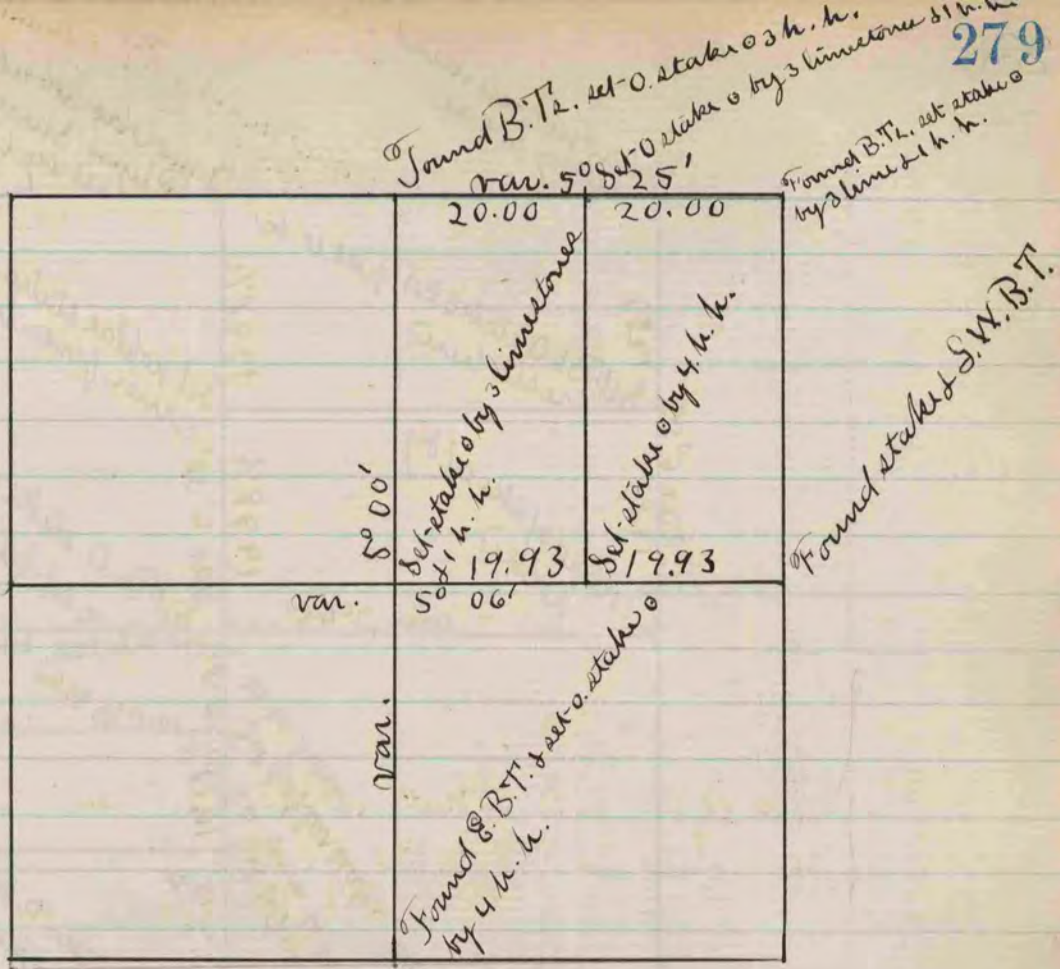 279
Found B.Ts. set O. stake ⊙ 3 h. h.
Set O stake ⊙ by 3 limestones & 1 h. h.
Found B.Ts. set stake ⊙
by 3 lime & 1 h. h.
var. 5° 25'
20.00 20.00
Set stake ⊙ by 3 limestones
& 1 h. h.
Set stake ⊙ by 4 h. h.
Found stake & S.W.B.T.
19.93 19.93
var. 5° 06'
var. 5° 00'
Found E.B.T. & set O. stake ⊙
by 4 h. h.